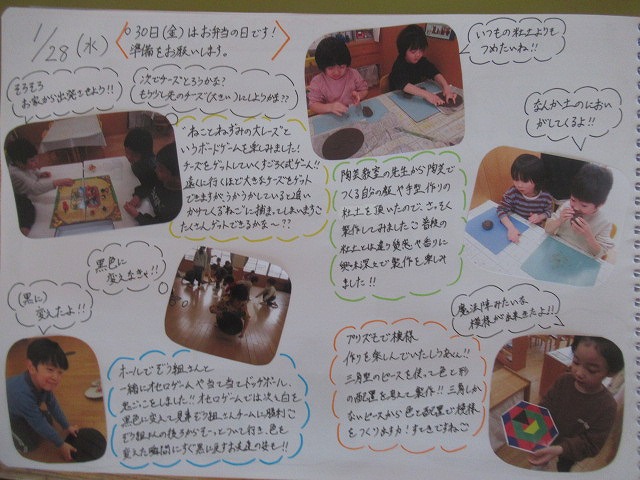 1/28(水)
30日(金)はお弁当の日です!
準備をお願いします。
そろそろ
お家から出発させよう!!
次でチーズとろうかな?
もう少し先のチーズ(大きい)にしようかな??
"ねことねずみの大レース"と
いうボードゲームを楽しみました!
チーズをゲットしていくすごろく式ゲーム!!
遠くに行くほど大きなチーズをゲット
できますが、うかうかしていると追い
かけてくる"ねこ"に捕まってしまいます。
たくさんゲットできるかな〜??
いつもの粘土よりも
つめたいね!!
なんか土のにおい
がしてくるよ!!
陶芸教室の先生から陶芸で
つくる自分の皿や手型作りの
粘土を頂いたので、さっそく
製作してみました。普段の
粘土とは違う質感や香りに
興味津々で製作を楽しみ
ました!!
黒色に
変えなきゃ!!
(黒に)
変えたよ!!
ホールでぞう組さんと
一緒にオセロゲームや当て当てドッチボール、
鬼ごっこをしました!!オセロゲームでは次々白を
黒色に変えて見事ぞう組さんチームに勝利♪
ぞう組さんの後ろからそーっとついて行き、色を
変えた瞬間にすぐ黒に戻すお友達の姿も!!
魔法陣みたいな
模様が出来たよ!!
プリズモで模様
作りを楽しんでいたしうなくん!!
三角型のピースを使って色と形
の配置を見て製作!!三角しか
ないピースから色と配置で模様
をつくりますが!すてきですね。